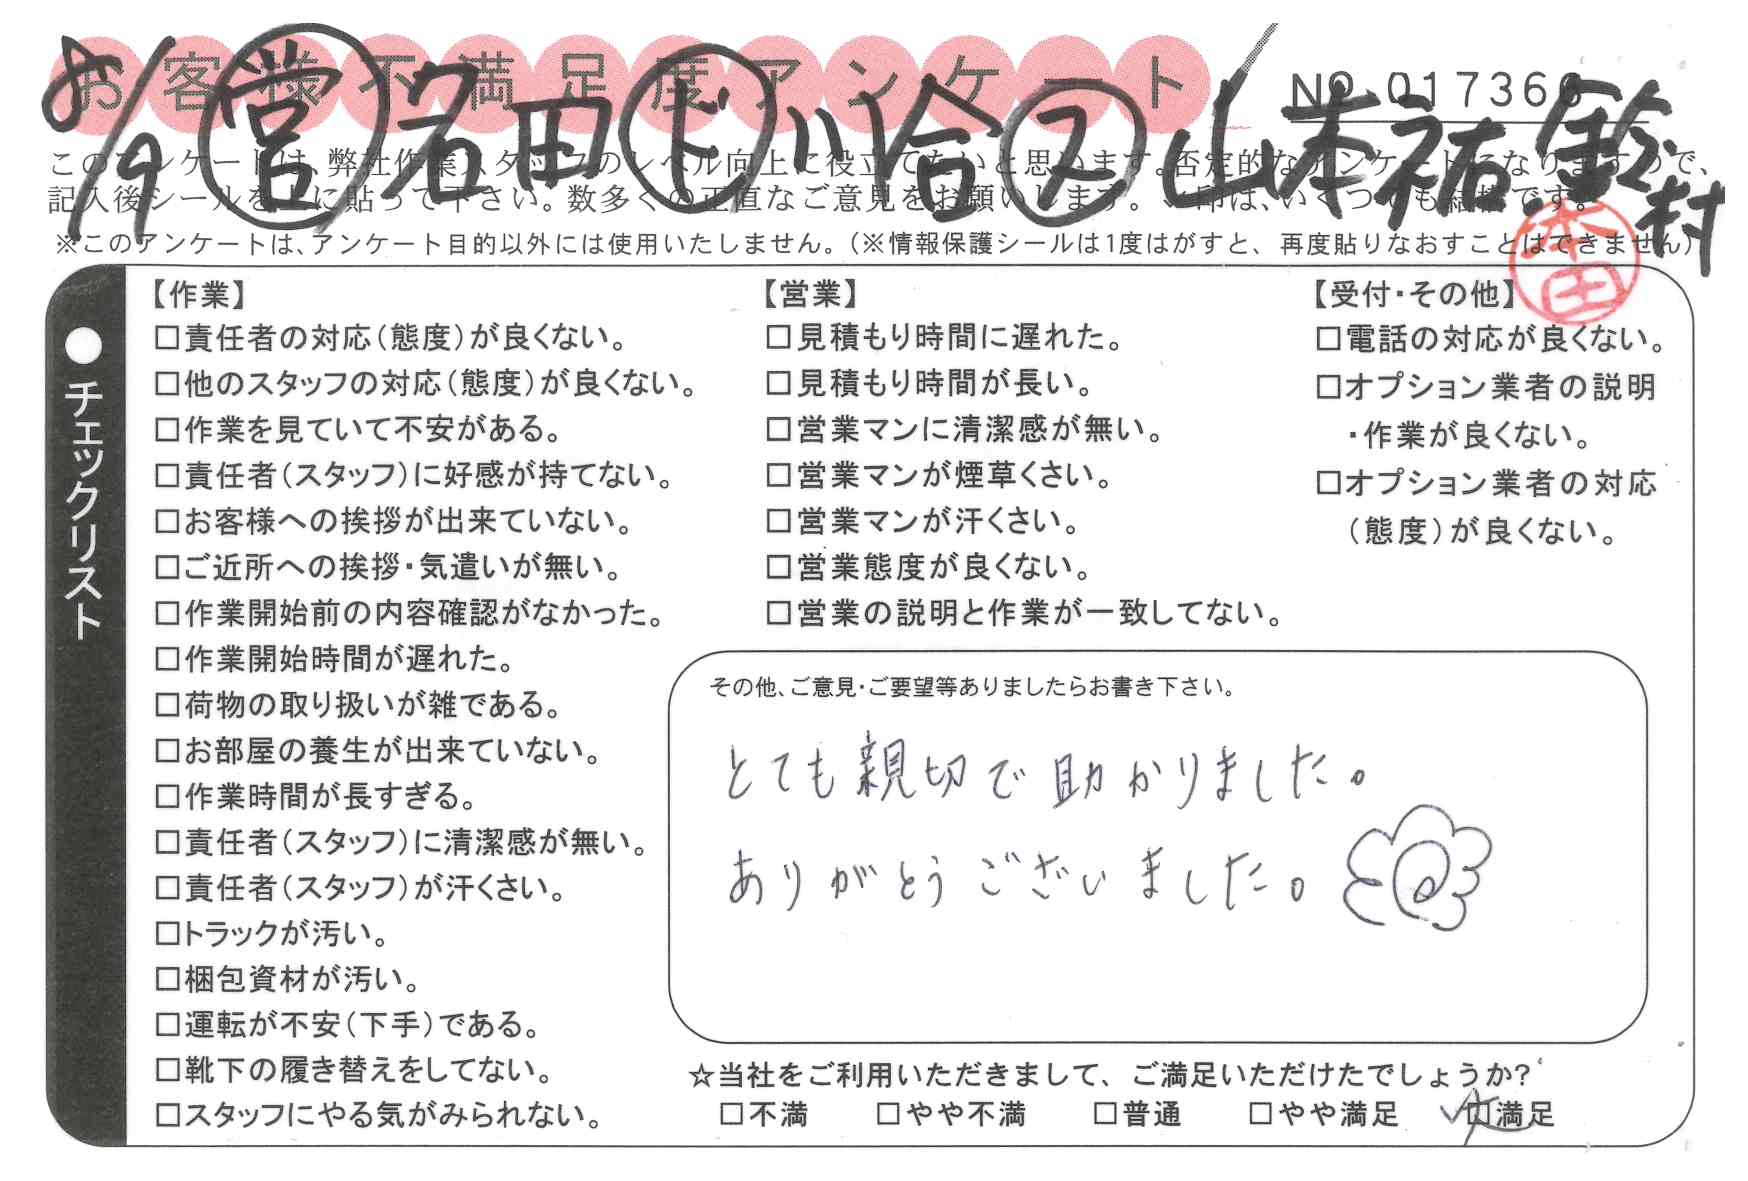 お客様不満足度アンケート
NO.017366
8/9 ㊂営 名田 ド 川合 ス 山本祐 鈴村
このアンケートは、弊社作業スタッフのレベル向上に役立てたいと思います。否定的なアンケートになりますので、
記入後シールを上に貼って下さい。数多くの正直なご意見をお願いします。✓印は、いくつでも結構です。
※このアンケートは、アンケート目的以外には使用いたしません。(※情報保護シールは1度はがすと、再度貼りなおすことはできません)
本田
●チェックリスト
【作業】
□責任者の対応(態度)が良くない。
□他のスタッフの対応(態度)が良くない。
□作業を見ていて不安がある。
□責任者(スタッフ)に好感が持てない。
□お客様への挨拶が出来ていない。
□ご近所への挨拶・気遣いが無い。
□作業開始前の内容確認がなかった。
□作業開始時間が遅れた。
□荷物の取り扱いが雑である。
□お部屋の養生が出来ていない。
□作業時間が長すぎる。
□責任者(スタッフ)に清潔感が無い。
□責任者(スタッフ)が汗くさい。
□トラックが汚い。
□梱包資材が汚い。
□運転が不安(下手)である。
□靴下の履き替えをしてない。
□スタッフにやる気がみられない。
【営業】
□見積もり時間に遅れた。
□見積もり時間が長い。
□営業マンに清潔感が無い。
□営業マンが煙草くさい。
□営業マンが汗くさい。
□営業態度が良くない。
□営業の説明と作業が一致してない。
【受付・その他】
□電話の対応が良くない。
□オプション業者の説明
・作業が良くない。
□オプション業者の対応
(態度)が良くない。
その他、ご意見・ご要望等ありましたらお書き下さい。
とても親切で助かりました。
ありがとうございました。
☆当社をご利用いただきまして、ご満足いただけたでしょうか?
□不満 □やや不満 □普通 □やや満足 □満足